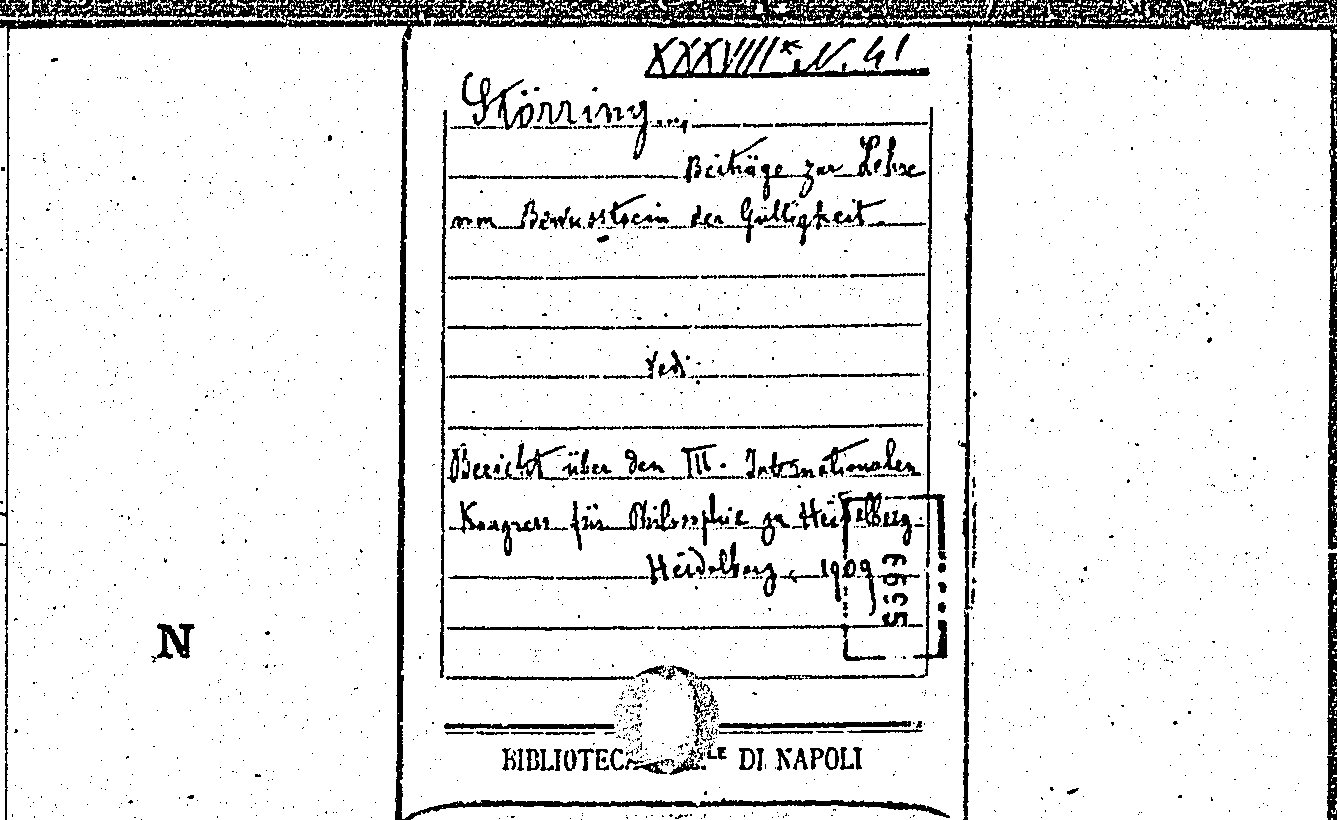 XXXVIII* N. 41
Störring
Beiträge zur Lehre
vom Bewusstsein der Gültigkeit
Vedi:
Bericht über den III. Internationalen
Kongress für Philosophie zu Heidelberg.
Heidelberg, 1909
N
BIBLIOTECA DI NAPOLI